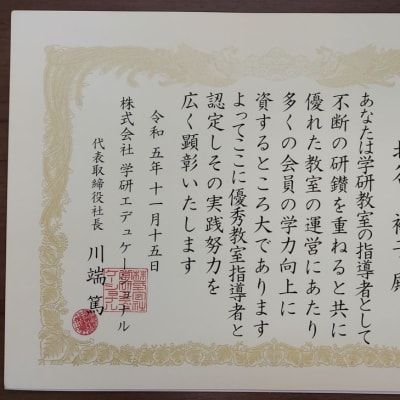 殿
あなたは学研教室の指導者として
不断の研鑽を重ねると共に
優れた教室の運営にあたり
多くの会員の学力向上に
資するところ大であります
よってここに優秀教室指導者と
認定しその実践努力を
広く顕彰いたします
令和五年十一月十五日
株式会社 学研エデュケーショナル
代表取締役社長 川端 篤